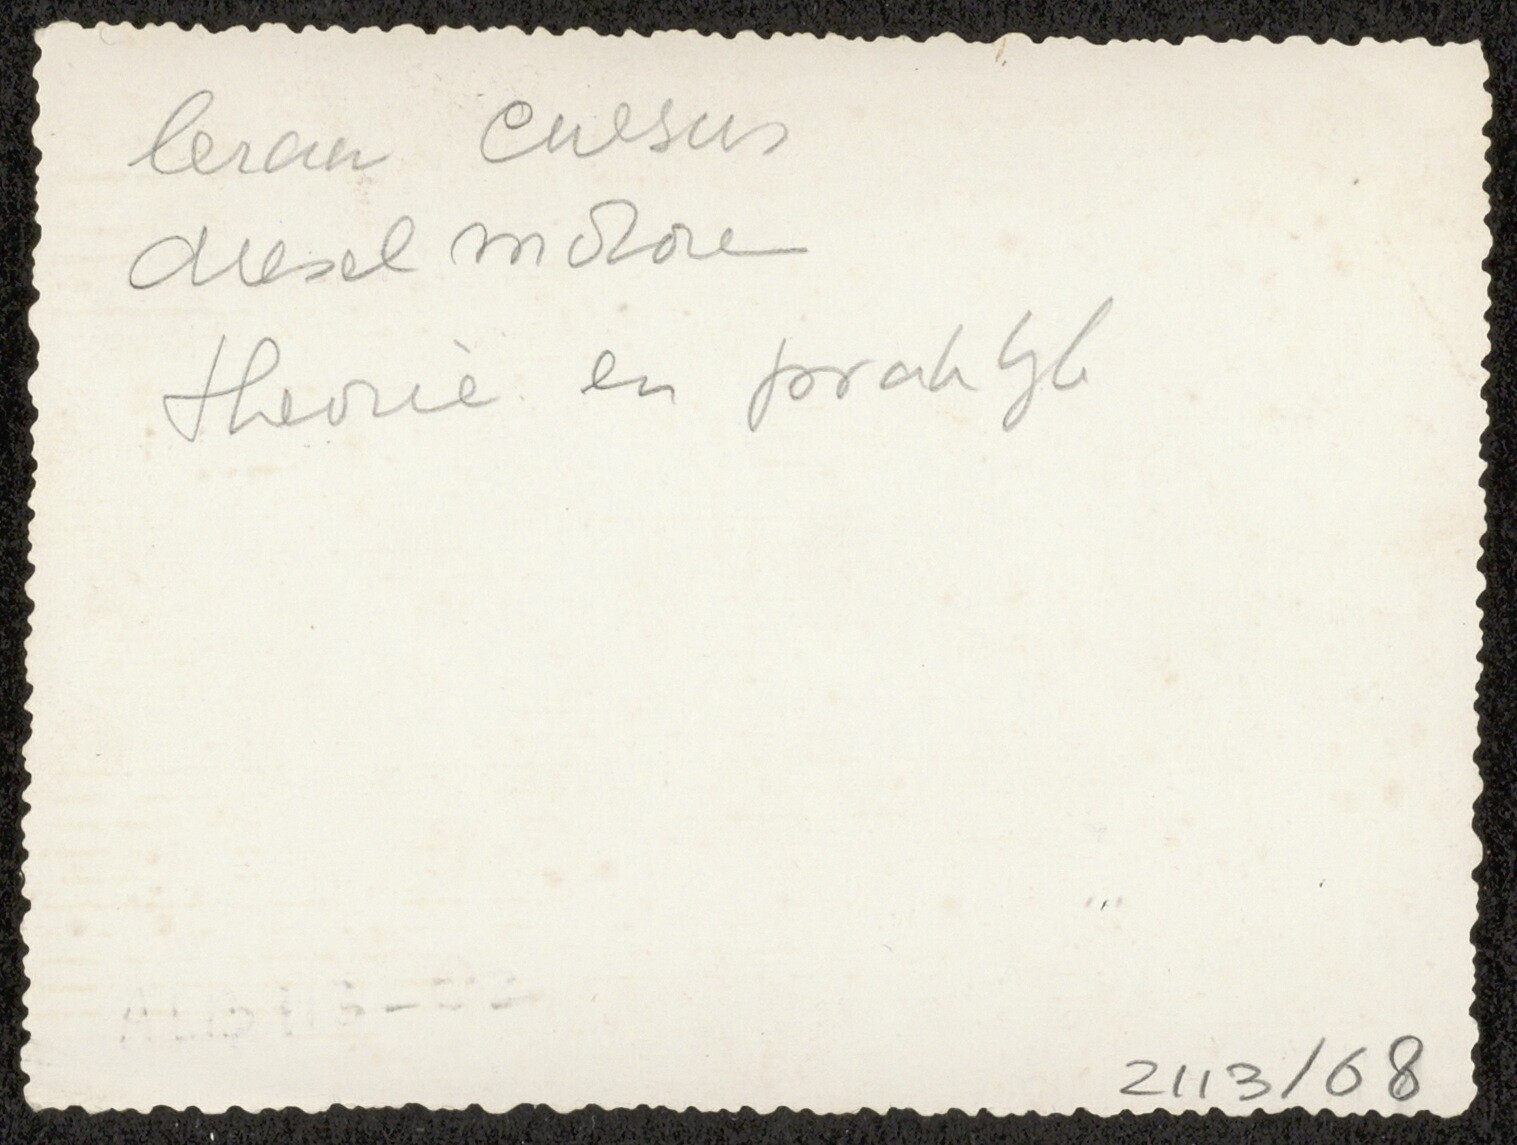 leraar cursus
diesel motoren
theorie en praktijk
2113/68